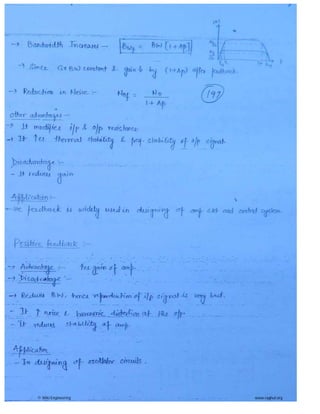 → Bandwidth Increases — BWf = BW [1+Aβ]
→ Since G×BW constant & gain ↓ by (1+Aβ) after feedback.
→ Reduction in Noise :- Nof = No / 1+Aβ
197
other advantages —
→ It modifies i/p & o/p resistance
→ It ↑es thermal stability & freq. stability of o/p signal.
Disadvantage :-
- It reduces gain
Application :-
- -ve feedback is widely used in designing of amp ckt and control system.
Positive feedback :-
→ Advantage :- ↑es gain of amp.
→ Disadvantage :-
→ Reduces BW, hence reproduction of i/p signal is very bad.
- It ↑ noise & harmonic distortion at the o/p.
- It reduces stability of amp.
Application
- In designing of oscillator circuits.
© Wiki Engineering
www.raghul.org